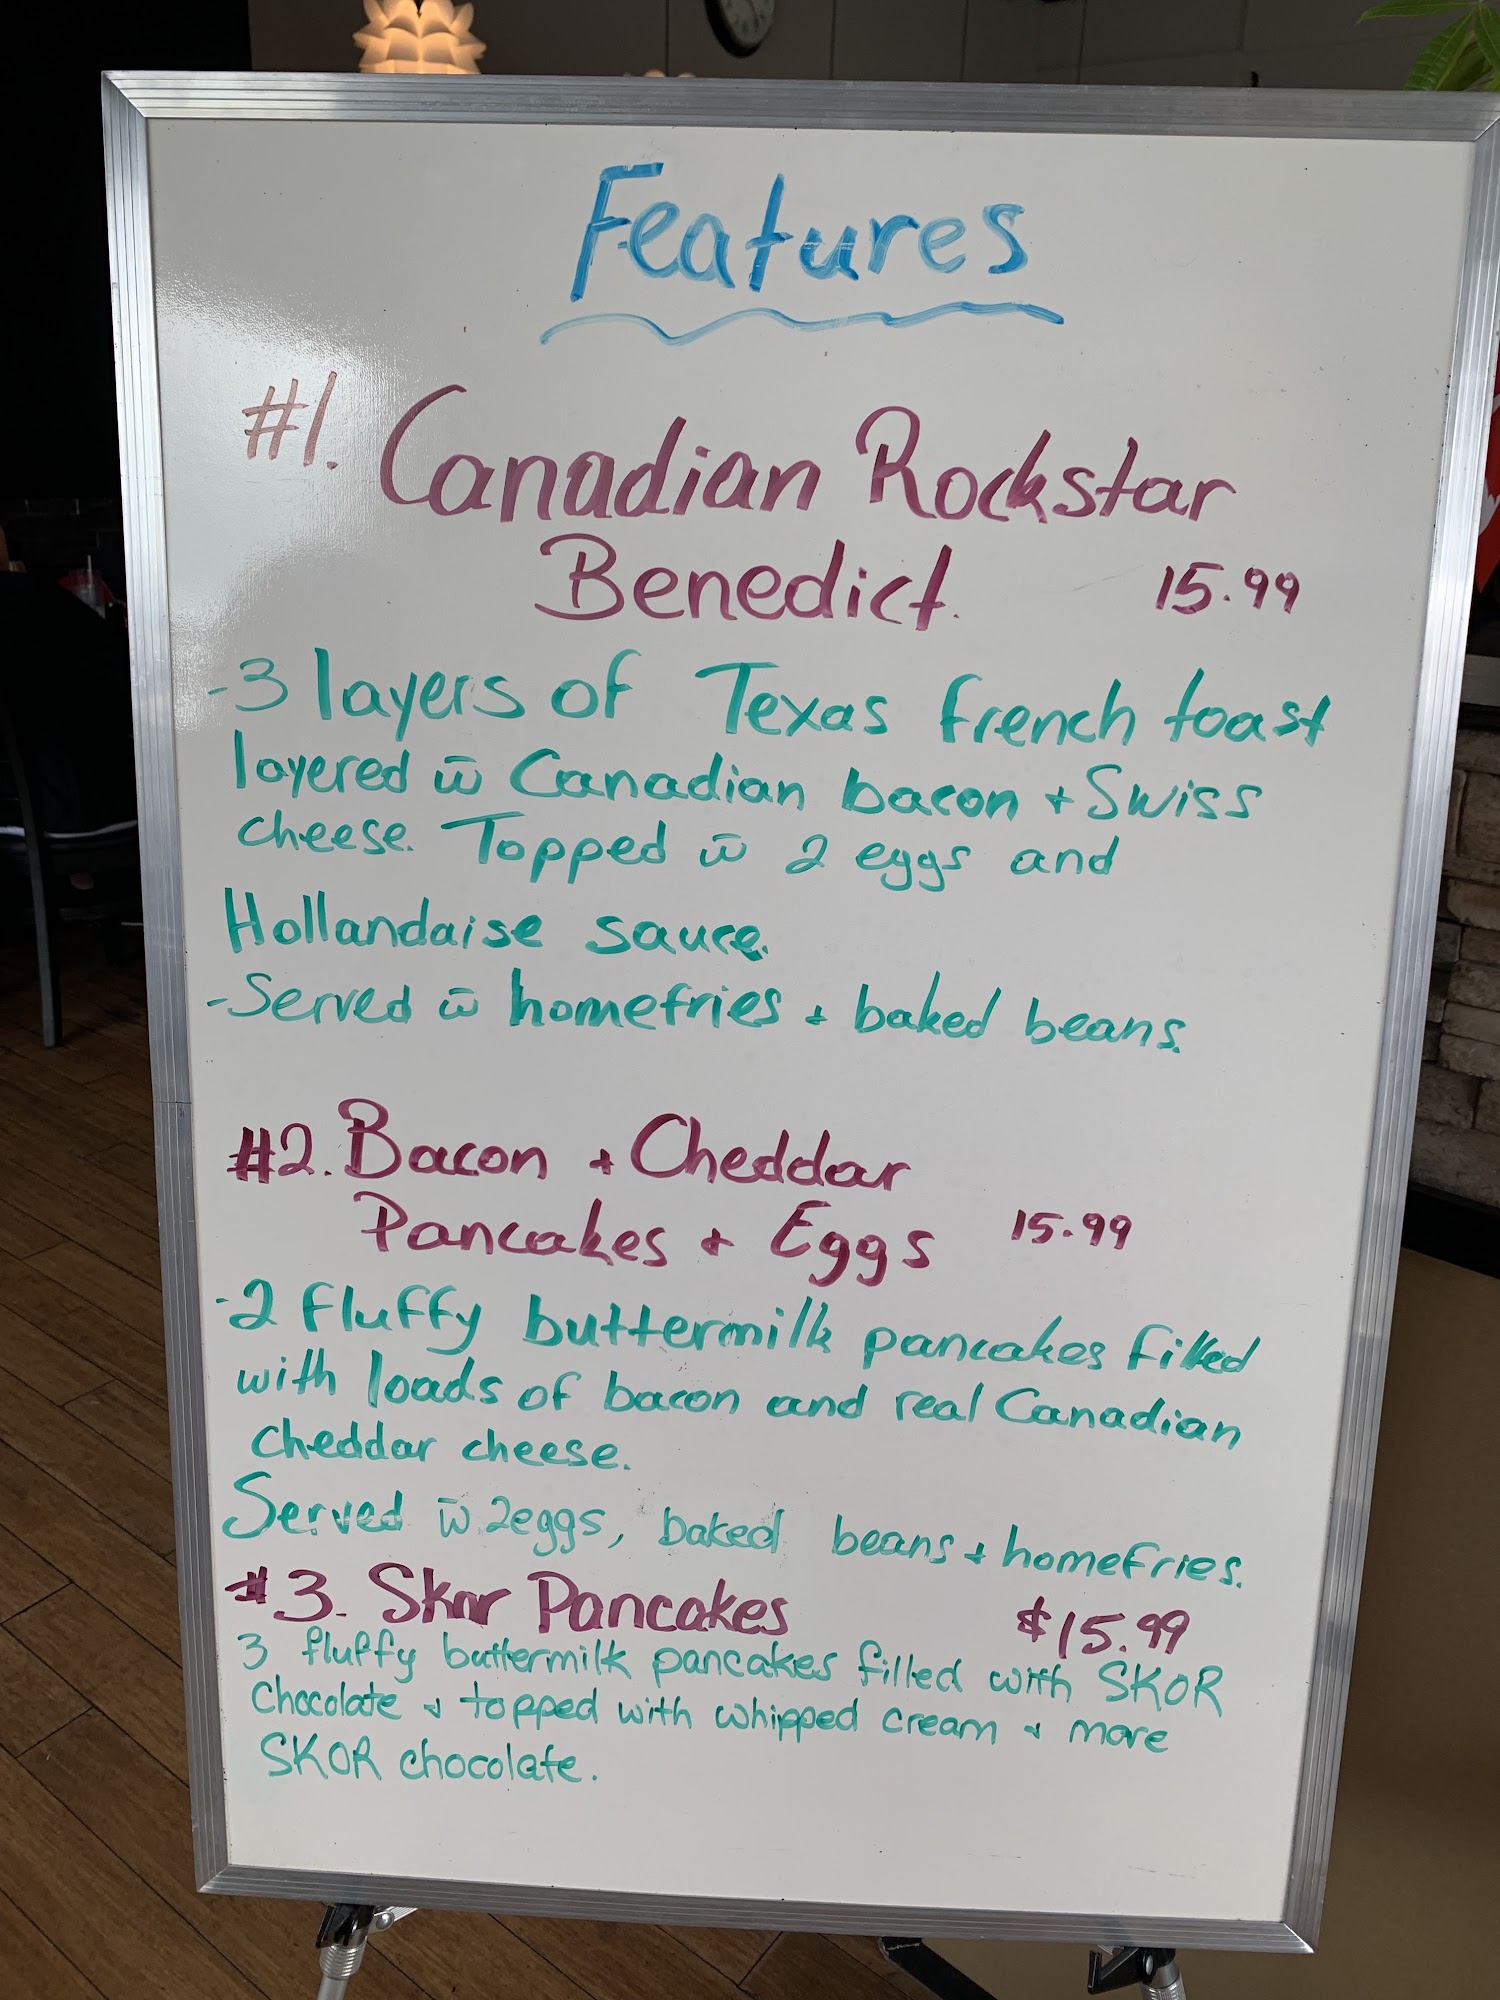 Features
#1. Canadian Rockstar
Benedict. 15.99
-3 layers of Texas french toast
layered w̄ Canadian bacon + Swiss
cheese. Topped w̄ 2 eggs and
Hollandaise sauce.
-Served w̄ homefries + baked beans.
#2. Bacon + Cheddar
Pancakes + Eggs 15.99
-2 fluffy buttermilk pancakes filled
with loads of bacon and real Canadian
cheddar cheese.
Served w̄ 2eggs, baked beans + homefries.
#3. Skor Pancakes $15.99
3 fluffy buttermilk pancakes filled with SKOR
chocolate + topped with whipped cream + more
SKOR chocolate.